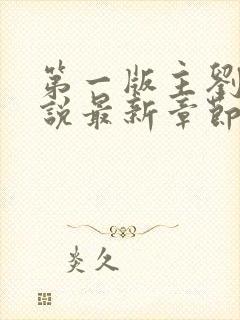 第一版主劉
說最新章節
炎久